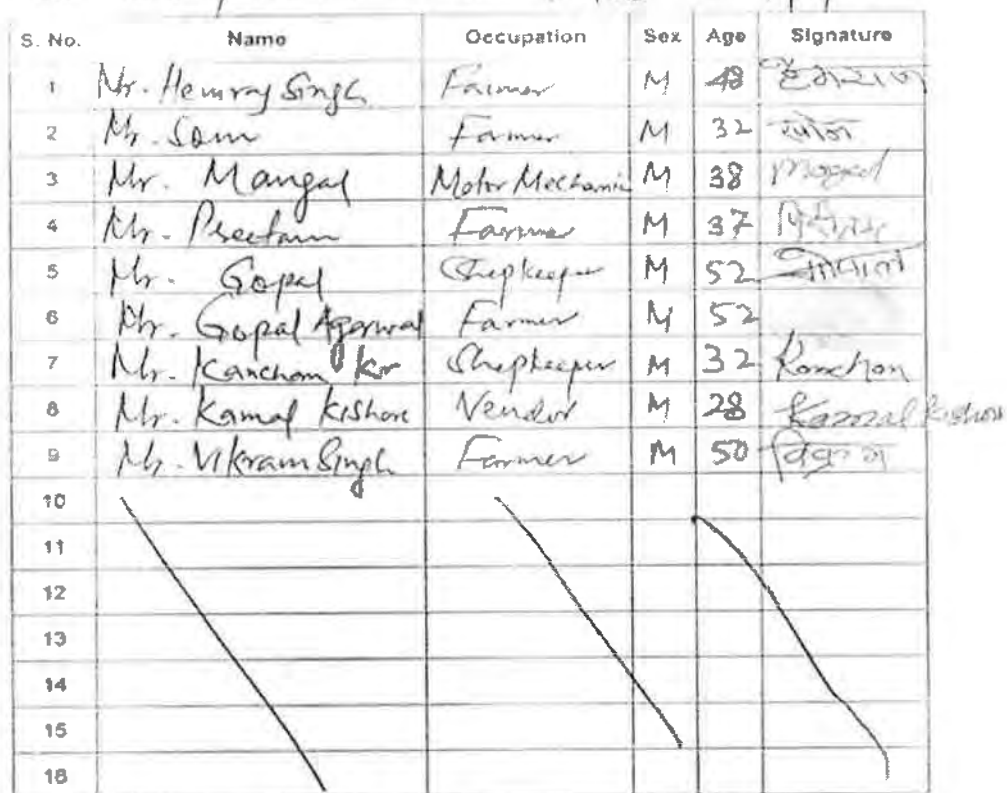 S. No. Name Occupation Sex Age Signature
1 Mr. Hemraj Singh Farmer M 48 हेमराज
2 Mr. Som Farmer M 32
3 Mr. Mangal Motor Mechanic M 38
4 Mr. Preetam Farmer M 37
5 Mr. Gopal Shopkeeper M 52 गोपाल
6 Mr. Gopal Agarwal Farmer M 52
7 Mr. Kancham Kr Shopkeeper M 32 Kanchan
8 Mr. Kamal Kishore Vendor M 28 Kamal Kishore
9 Mr. Vikram Singh Farmer M 50 विक्रम
10
11
12
13
14
15
16